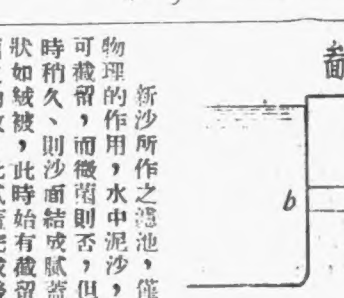 b
新沙所作之濾池，僅
物理的作用，水中泥沙，
可截留，而微菌則否，但
時稍久、則沙面結成膩蓋
狀如絨被，此時始有截留